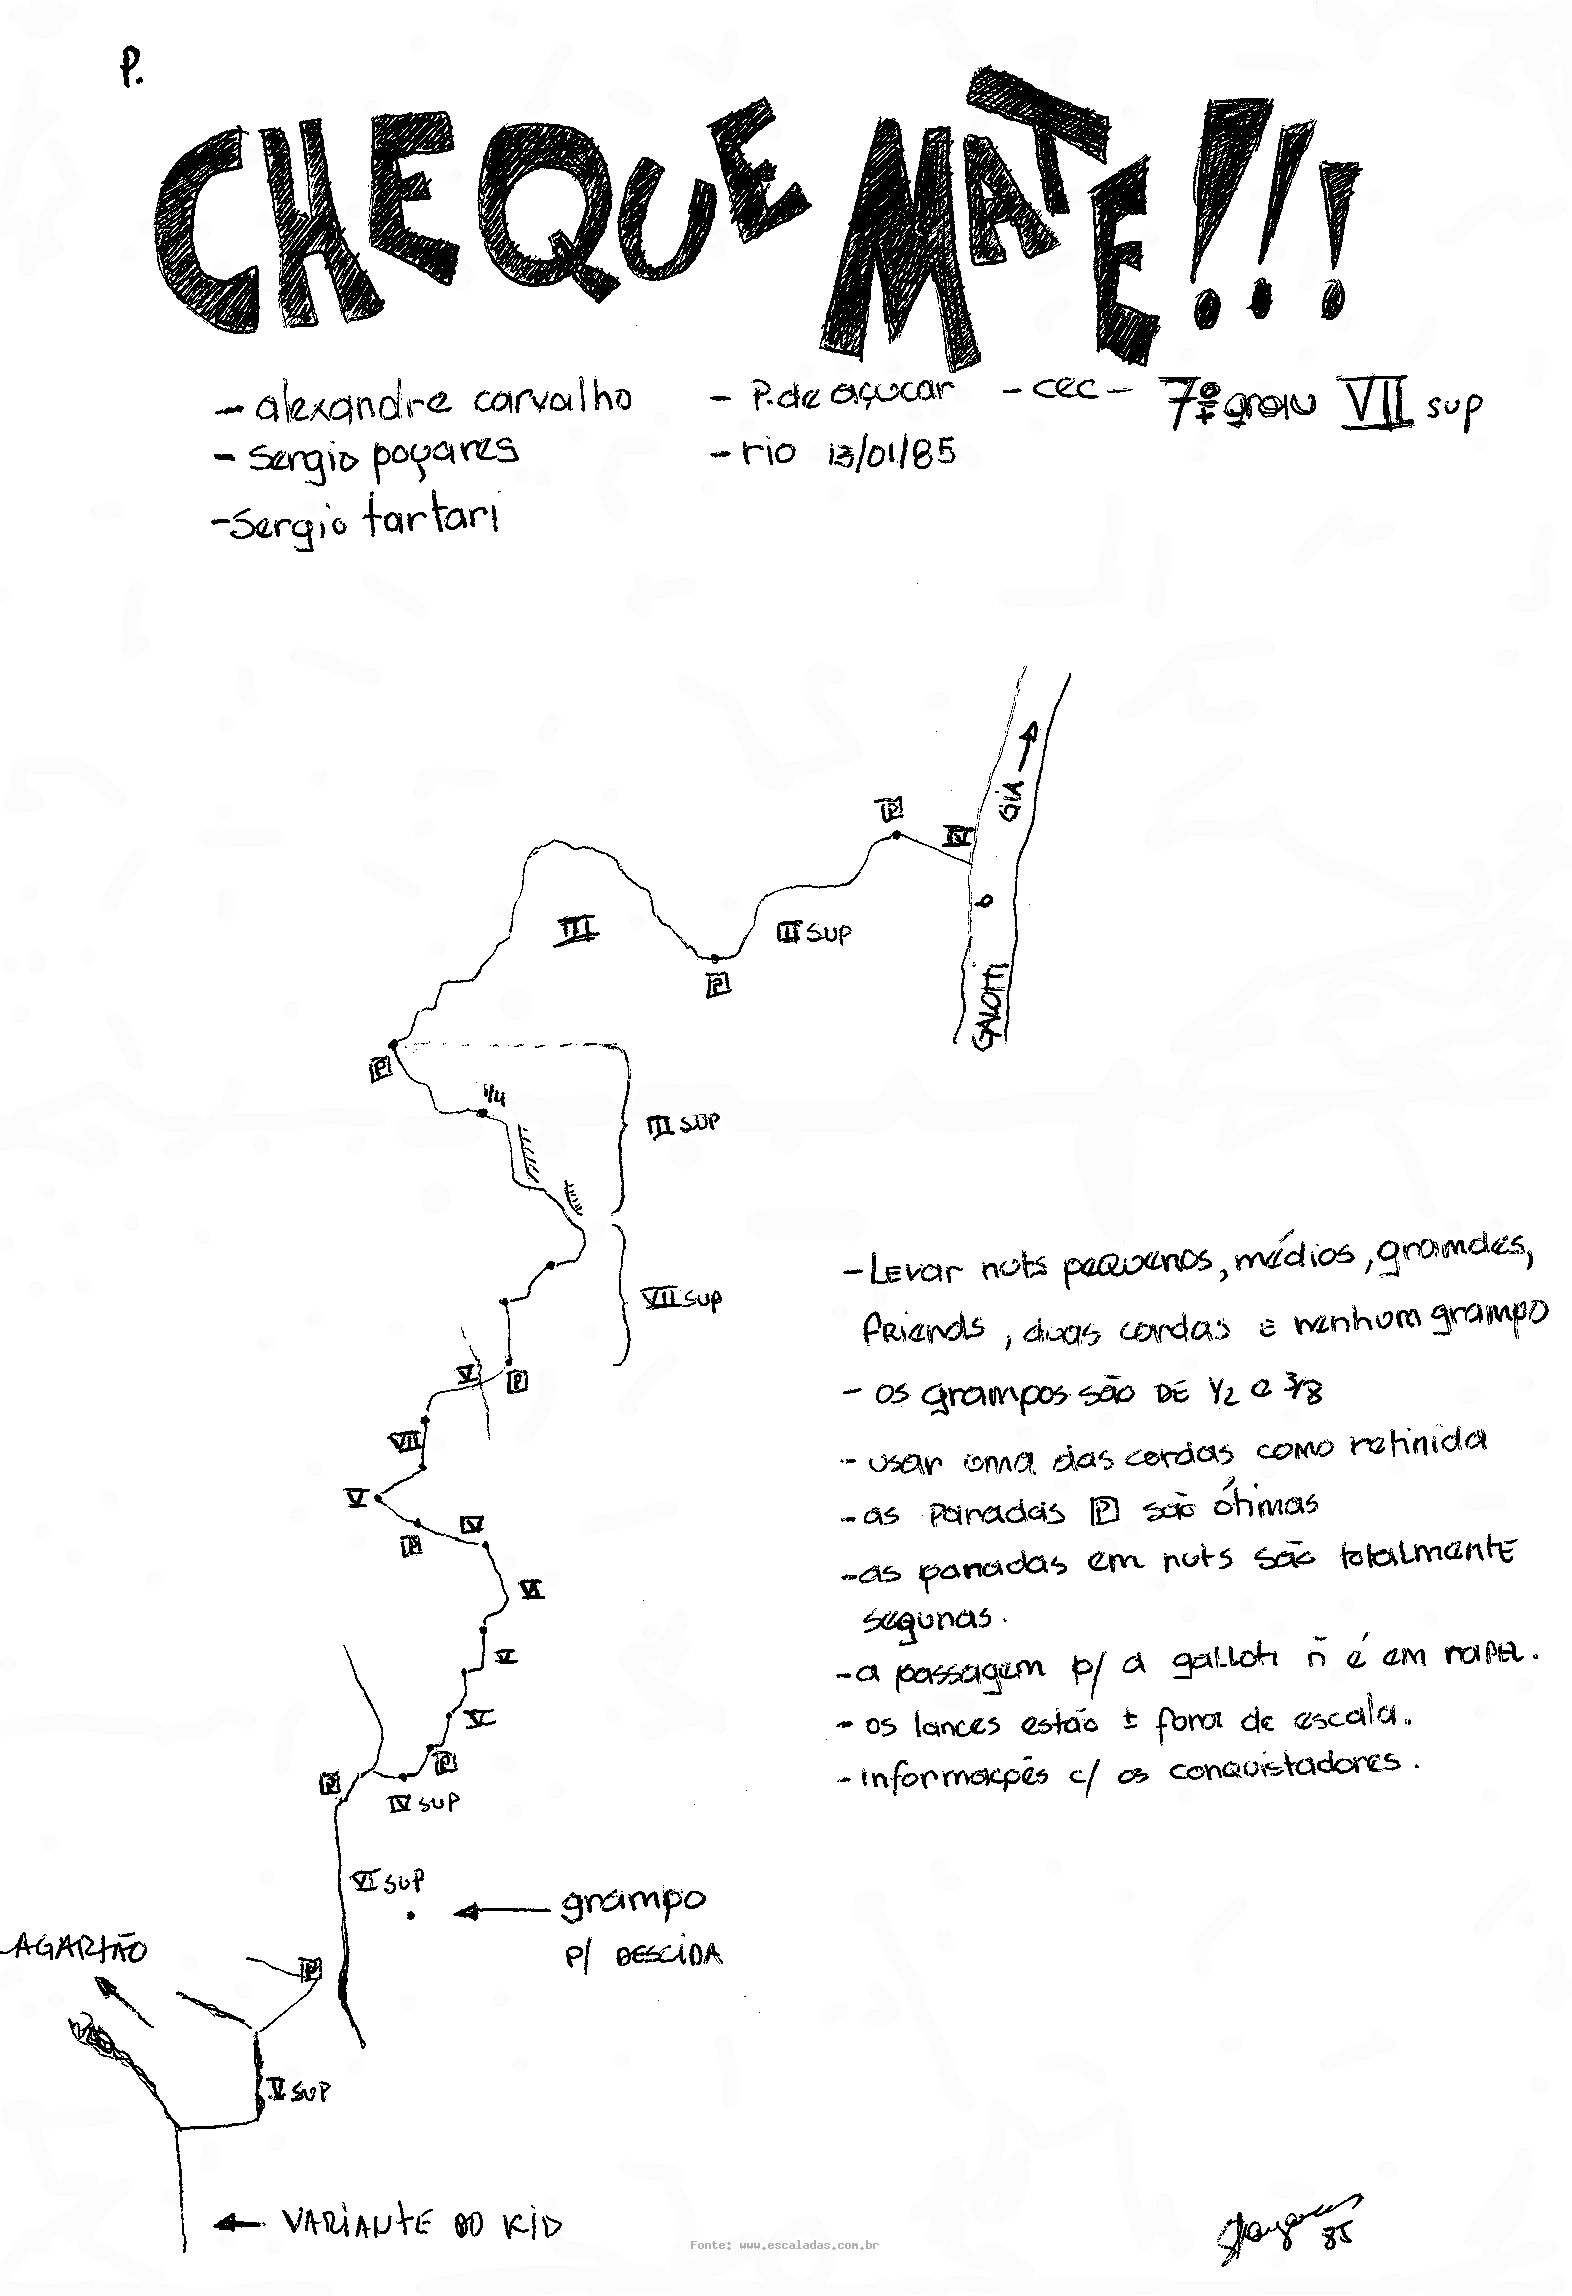 P.
CHEQUE MATE!!!
- alexandre carvalho - P. de açucar - cec - 7º grau VII sup
- sergio poyares - rio 13/01/85
- Sergio tartari
P
IV
GIA
III
III SUP
P
GALOTTI
P
1/4
III SUP
- Levar nuts pequenos, médios, grandes,
friends, duas cordas e nenhum grampo
VII SUP
V P
- os grampos são DE 1/2 e 3/8
VII
- usar uma das cordas como retinida
V
- as paradas P são ótimas
P IV
- as paradas em nuts são totalmente
seguras.
VI
- a passagem p/ a galloti ñ é em rapel.
V
- os lances estão ± fora de escala.
VI
- informações c/ os conquistadores.
P
P
IV SUP
VI SUP
grampo
P/ DESCIDA
AGARTÃO
P
V SUP
VARIANTE DO KID
85
Fonte: www.escaladas.com.br